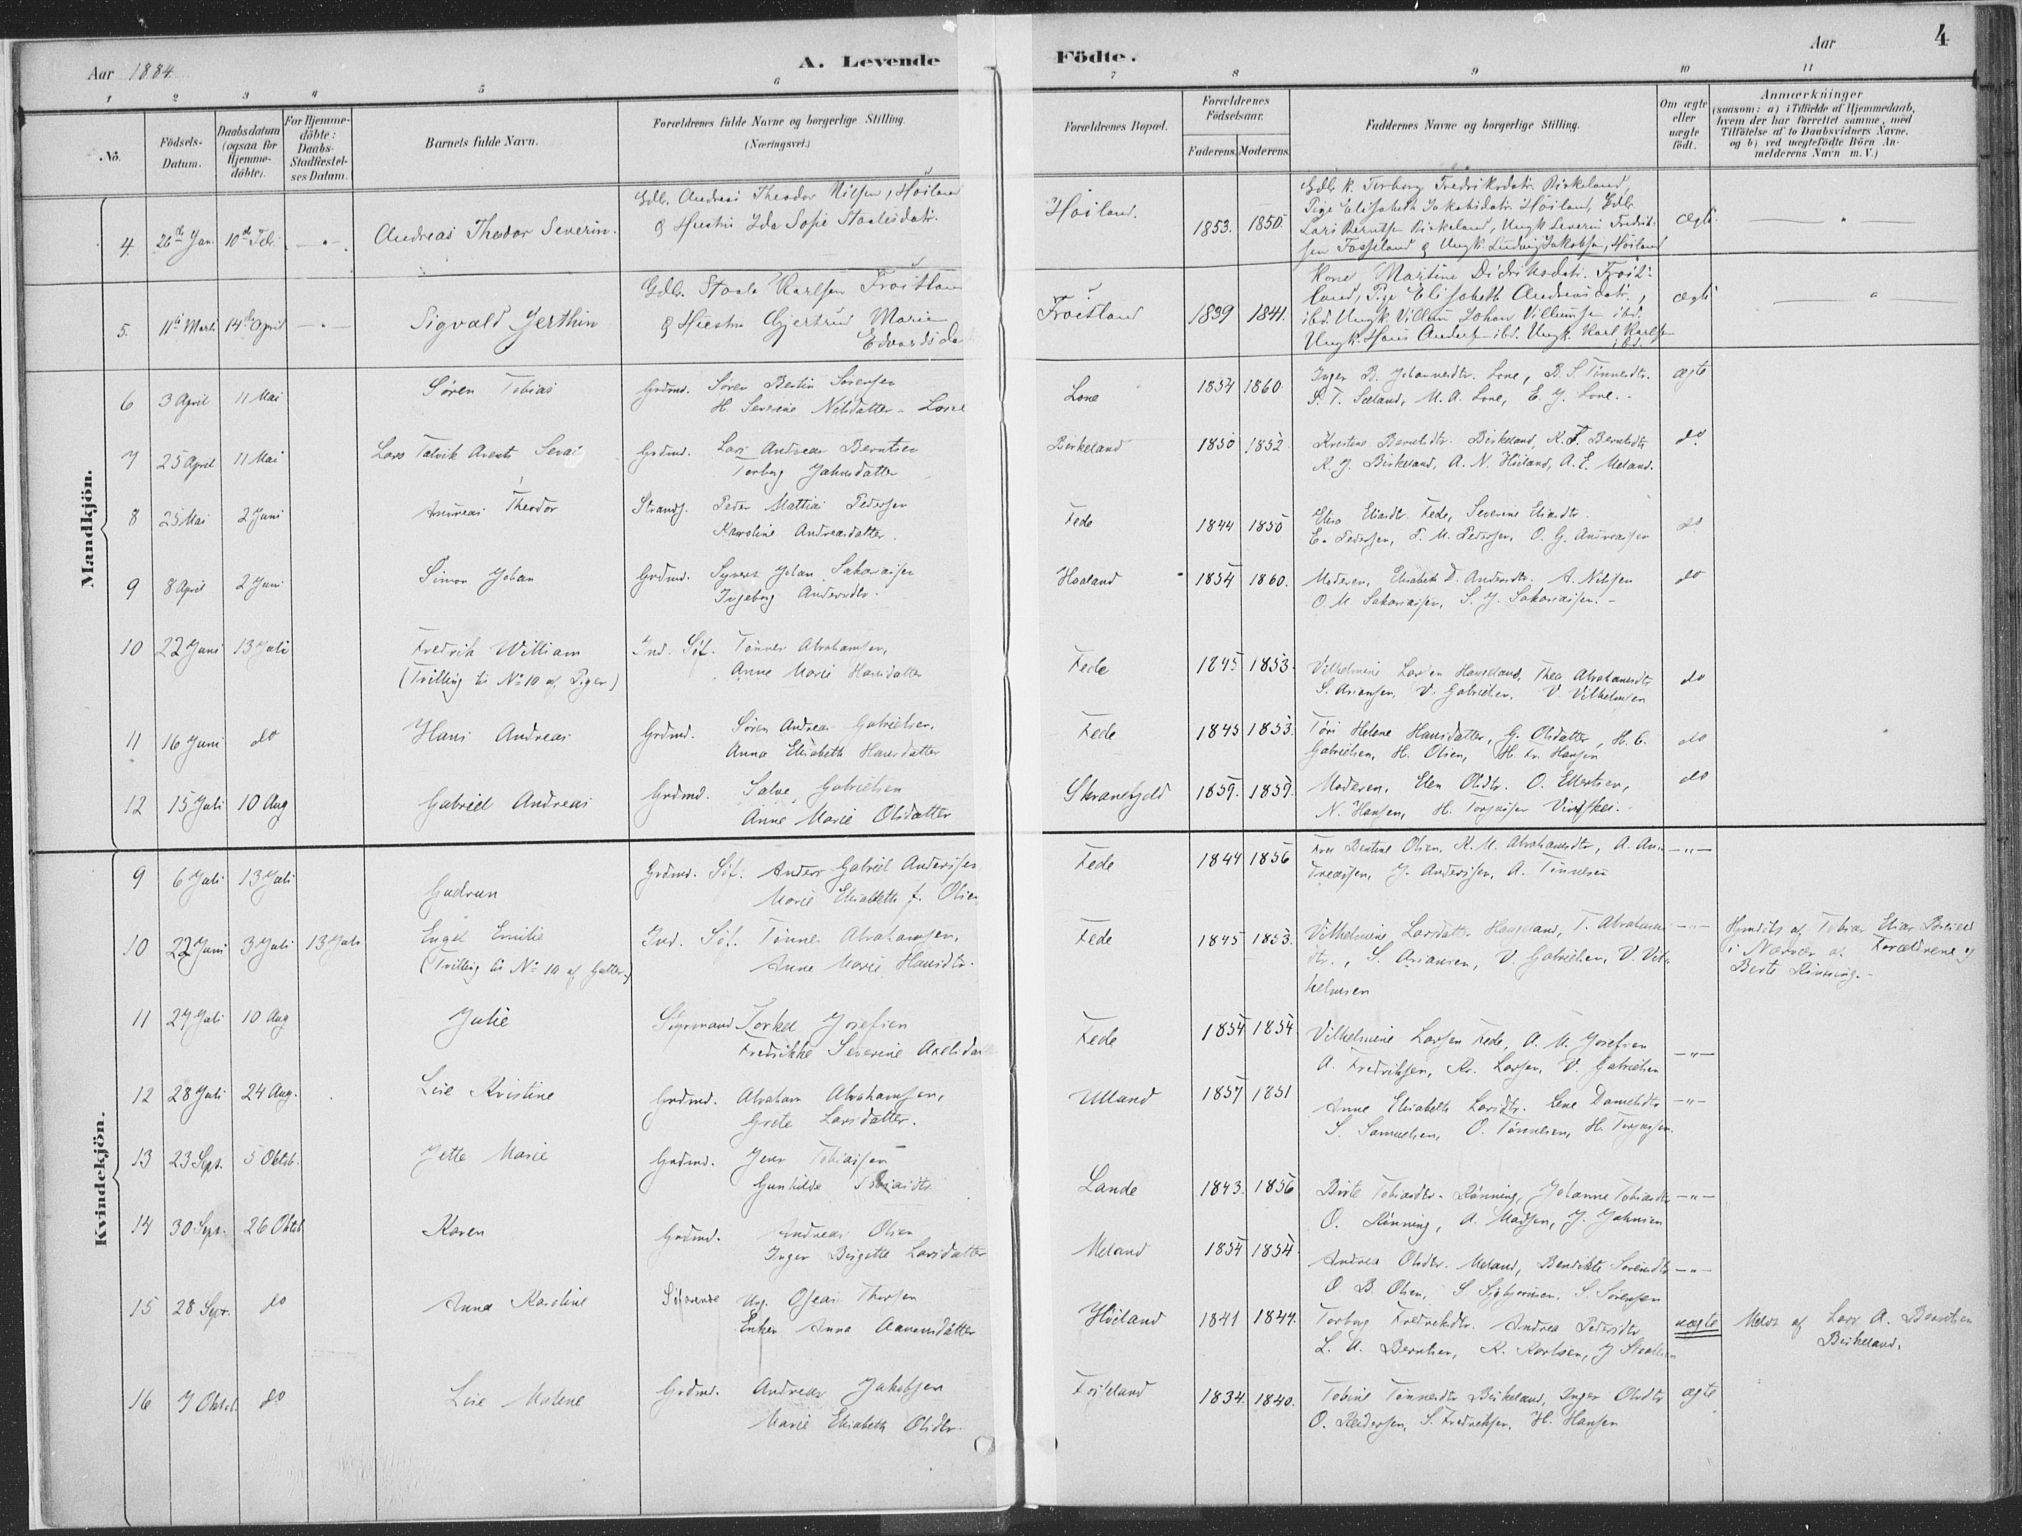 Aar 1884
A. Levende
Födte.
Aar
4
1 2 3 4 5 6 7 8 9 10 11
No.
Födsels-
Datum.
Daabsdatum
(ogsaa for
Hjemme-
döbte).
For Hjemme-
döbte:
Daabs-
Stadfæstel-
ses Datum.
Barnets fulde Navn.
Forældrenes fulde Navne og borgerlige Stilling.
(Næringsvei.)
Forældrenes Bopæl.
Forældrenes
Födselsaar.
Faderens. Moderens.
Faddernes Navne og borgerlige Stilling.
Om ægte
eller
uægte
födt.
Anmærkninger
(saasom: a) i Tilfælde af Hjemmedaab,
hvem der har forrettet samme, med
Tilföielse af to Daabsvidners Navne.
og b) ved uægtefödte Börn An-
melderens Navn m. V.)
Mandkjön.
4. 26de Jan. 10de Feb. Andreas Theodor Severin.
Gdb. Andreas Theodor Nilsen, Høiland
& Hustru Ida Sofie Staalesdatr.
Høiland. 1853. 1850.
Gdb. k. Torborg Fredriksdatr. Birkeland,
Pige Elisabeth Jakobsdatr. Høiland, Gdb.
Lars Berntsen Birkeland, Ungk. Severin Fredrik-
sen Fosseland & Ungk. Ludvig Jakobsen, Høiland
ægte
5. 11te Marts 14de April Sigvald Jerthin
Gdb. Staale Karlsen Frøitland
& Hustru Gjertrud Marie
Edvardsda
Frøitland 1839 1841.
Kone Martine Didriksdatr. Frøit-
land, Pige Elisabeth Andreasdatr.,
ibd. Ungk. Villum Johan Villumsen ibd.
Ungk. Hans Andersen ibd. Ungk. Karl Karlsen
ibd.
ægte
6 3 April 11 Mai Søren Tobias
Grdmd. Søren Bertin Sørensen
H. Severine Nilsdatter - Lone
Lone 1854 1860.
Inger B. Johannesdtr. Lone, B. S. Tønnesdtr.
S. T. Sæland, M. A. Lone, E. J. Lone.
ægte
7 25 April 11 Mai Lars Talvik Arent
Grdmd. Lars Andreas Berntsen
Torborg Jahnsdatter
Birkeland 1850 1852.
Kristine Berntsdtr. Birkeland, K. F. Berntsdtr
K. J. Birkeland, A. N. Høiland, A. E. Meland.
do
8 25 Mai 2 Juni Andreas Theodor
Strands. Peder Mattias Pedersen
Karoline Andreasdatter.
Fede 1844 1850
Elisa Eliasdtr. Fede, Severine Eliasdtr.
E. Pedersen, T. M. Pedersen, O. G. Andreassen
do
9 8 April 2 Juni Simon Johan
Grdmd. Syvert Johan Sakariasen
Ingeborg Andersdtr.
Haaland 1854 1860.
Moderen, Elisabeth D. Andersdtr. A. Nilsen
O. M. Sakariasen, S. J. Sakariasen.
do
10 22 Juni 13 Juli Fredrik William
(Tvilling til No 10 af Piger)
Ind. Søf. Tønnes Abrahamsen,
Anne Marie Hansdatter
Fede 1845 1853.
Vilhelmine Larsen Haugland, Thea Abrahamsdtr
S. Asiansen, V. Gabrielsen, V. Vilhelmsen
do
11 16 Juni do Hans Andreas
Grdmd. Søren Andreas Gabrielsen,
Anna Elisabeth Hansdatter
Fede 1845 1853.
Tøri Helene Hansdatter, G. Olsdatter, H. C.
Gabrielsen, H. Olsen, H. Fr. Hansen
do
12 15 Juli 10 Aug Gabriel Andreas
Grdmd. Salve Gabrielsen
Anne Marie Olsdatter
Skranefjeld 1859. 1859.
Moderen, Elen Olsdtr. O. Ellertsen,
N. Hansen, H. Torjussen
do
Kvindekjön.
9 6 Juli 13 Juli Gudrun
Grdmd. Søf. Anders Gabriel Anderssen
Marie Elisabeth f. Olsen
Fede 1844 1856
Fru Bertine Olsen, K. M. Abrahamsdtr, A. An-
dreassen, J. Anderssen, A. Tønnesen
10 22 Juni 3 Juli 13 Juli Engel Emilie
(Tvilling til No 10 af Gutter)
Ind. Søf. Tønnes Abrahamsen,
Anne Marie Hansdtr.
Fede 1845 1853.
Vilhelmine Larsdatter Haugland, T. Abrahams-
dtr., S. Asiansen, V. Gabrielsen, V. Vil-
helmsen
Hjmdbt af Tobias Elias
i Nærvær af Forældrene og
Berte Rönning.
11 27 Juli 10 Aug Julie
Styrmand Torkel Josefsen
Fredrikke Severine Axelsdatter
Fede 1854 1854
Vilhelmine Larsen Fede, A. M. Josefsen
A. Fredriksen, Kr. Larsen, V. Gabrielsen
12 28 Juli 24 Aug. Lise Kristine
Grdmd. Abraham Abrahamsen,
Grete Larsdatter.
Ulland 1857 1851
Anne Elisabeth Larsdtr. Lene Danielsdtr
S. Samuelsen, O. Tønnesen, H. Torjussen.
13 23 Sept. 5 Oktob. Jette Marie
Grdmd. Jens Tobiassen
Gunhilde
Lande 1843. 1856
Berte Tobiasdtr. Rønning, Johanne Tobiasdtr
O. Rønning, A. Madsen, J. Jahnsen
14 30 Sept. 26 Oktob Karen
Grdmd. Andreas Olsen
Inger Birgitte Larsdatter
Meland 1854 1854.
Andrea Olsdtr. Meland, Benedikte Sørensdtr
O. B. Olsen, S. Sigbjørnsen, S. Sørensen
15 28 Sept. do Anna Karoline
Söfarende Ung. Oskar Thorsen
Enken Anna Aanensdatter
Høiland 1841 1844.
Torborg Fredriksdtr. Andrea Pedersdtr
L. A. Berntsen, K. Karlsen, J. Staalesen
uægte
Meldt af Lars A. Berntsen
Birkeland.
16 7 Oktob do Lise Malene
Grdmd. Andreas Jakobsen
Marie Elisabeth Olsdtr.
Fosseland 1834. 1840.
Tobine Tønnesdtr Birkeland, Inger Olsdtr
O. Reidersen, S. Fredriksen, H. Hansen
ægte